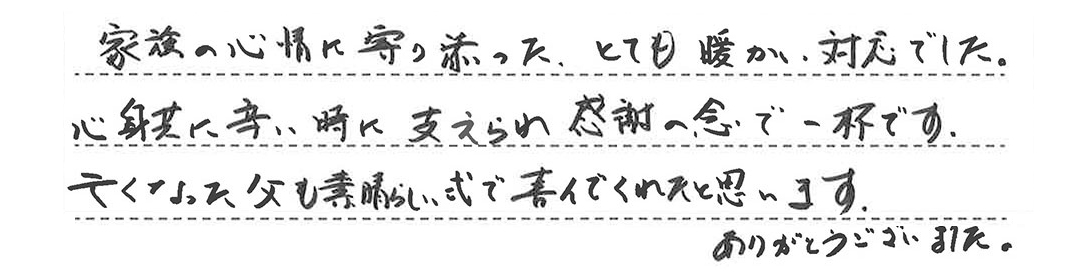 家族の心情に寄り添った、とても暖かい対応でした。
心身共に辛い時に支えられ感謝の念で一杯です。
亡くなった父も素晴らしい式で喜んでくれたと思います。
ありがとうございました。